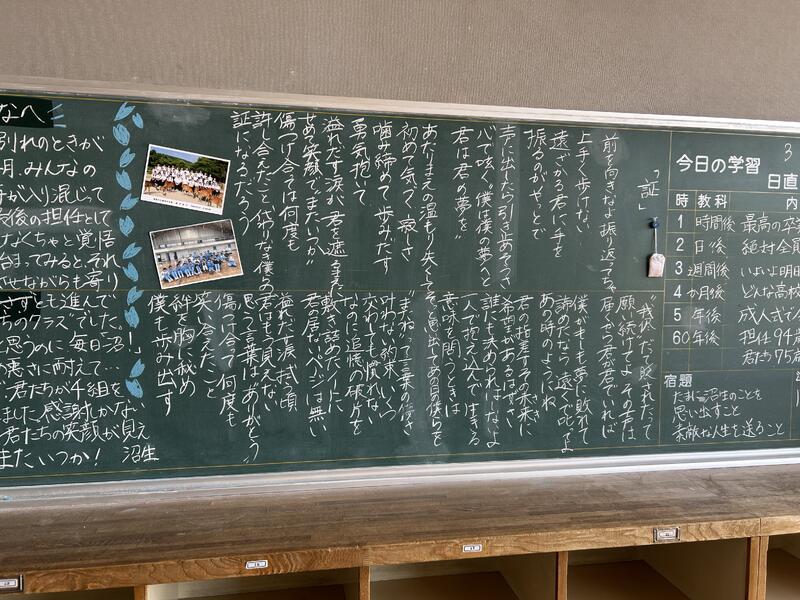 なへ
別れのときが
月、みんなの
が入り混じて
最後の担任として
なくちゃと覚悟
始まってみると、それ
させながらも寄り
さずとも進んで
ちのクラス"でした。
と思うのに毎日沼!
寒さに耐えて…
君たちが4組を
ました、感謝しかな
君たちの笑顔が見え
またいつか! 沼生
「証」
前を向きなよ 振り返ってちゃ
上手く歩けない
遠ざかる君に 手を
振るのがやっとで
声に出したら引き止めそうさ
心で呟く"僕は僕の夢へと
君は君の夢を"
あたりまえの温もり失くして
初めて気づく寂しさ
噛み締めて歩みだす
勇気抱いて
溢れだす涙が君を遮るまえに
せめて笑顔で"またいつか"
傷つけ合っては何度も
許し合えたこと 代わりなき僕らの
証になるだろう
"我侭だ"って貶されたって
願い続けてよ その声は
届くから 君が君でいれば
僕がもしも夢に敗れて
諦めたなら 遠くで叱ってよ
あの時のようにね
君の指差すその未来に
希望があるはずさ
誰にも決められはしないよ
一人で抱え込んで生きる
意味を問うときは
そっと思い出してあの日の僕らを
"またね"って言葉の儚さ
叶わない約束 いくつ
交わしても慣れない
なのに追憶の破片を
敷き詰めたノートに
君の居ないページは無い
溢れだす涙 拭う頃
君はもう見えない
想う言葉は"ありがとう"
傷つけ合っては何度も
笑い合えたこと
絆を胸に秘め
僕も歩み出す
3
今日の学習
日直
時 教科 内
1 時間後 最高の卒
2 日後 絶対全
3 週間後 いよいよ明日
4 か月後 どんな高校
5 年後 成人式でん
60 年後 担任94歳
君たち75歳
宿題
たまに沼生のことを
思い出すこと
素敵な人生を送ること